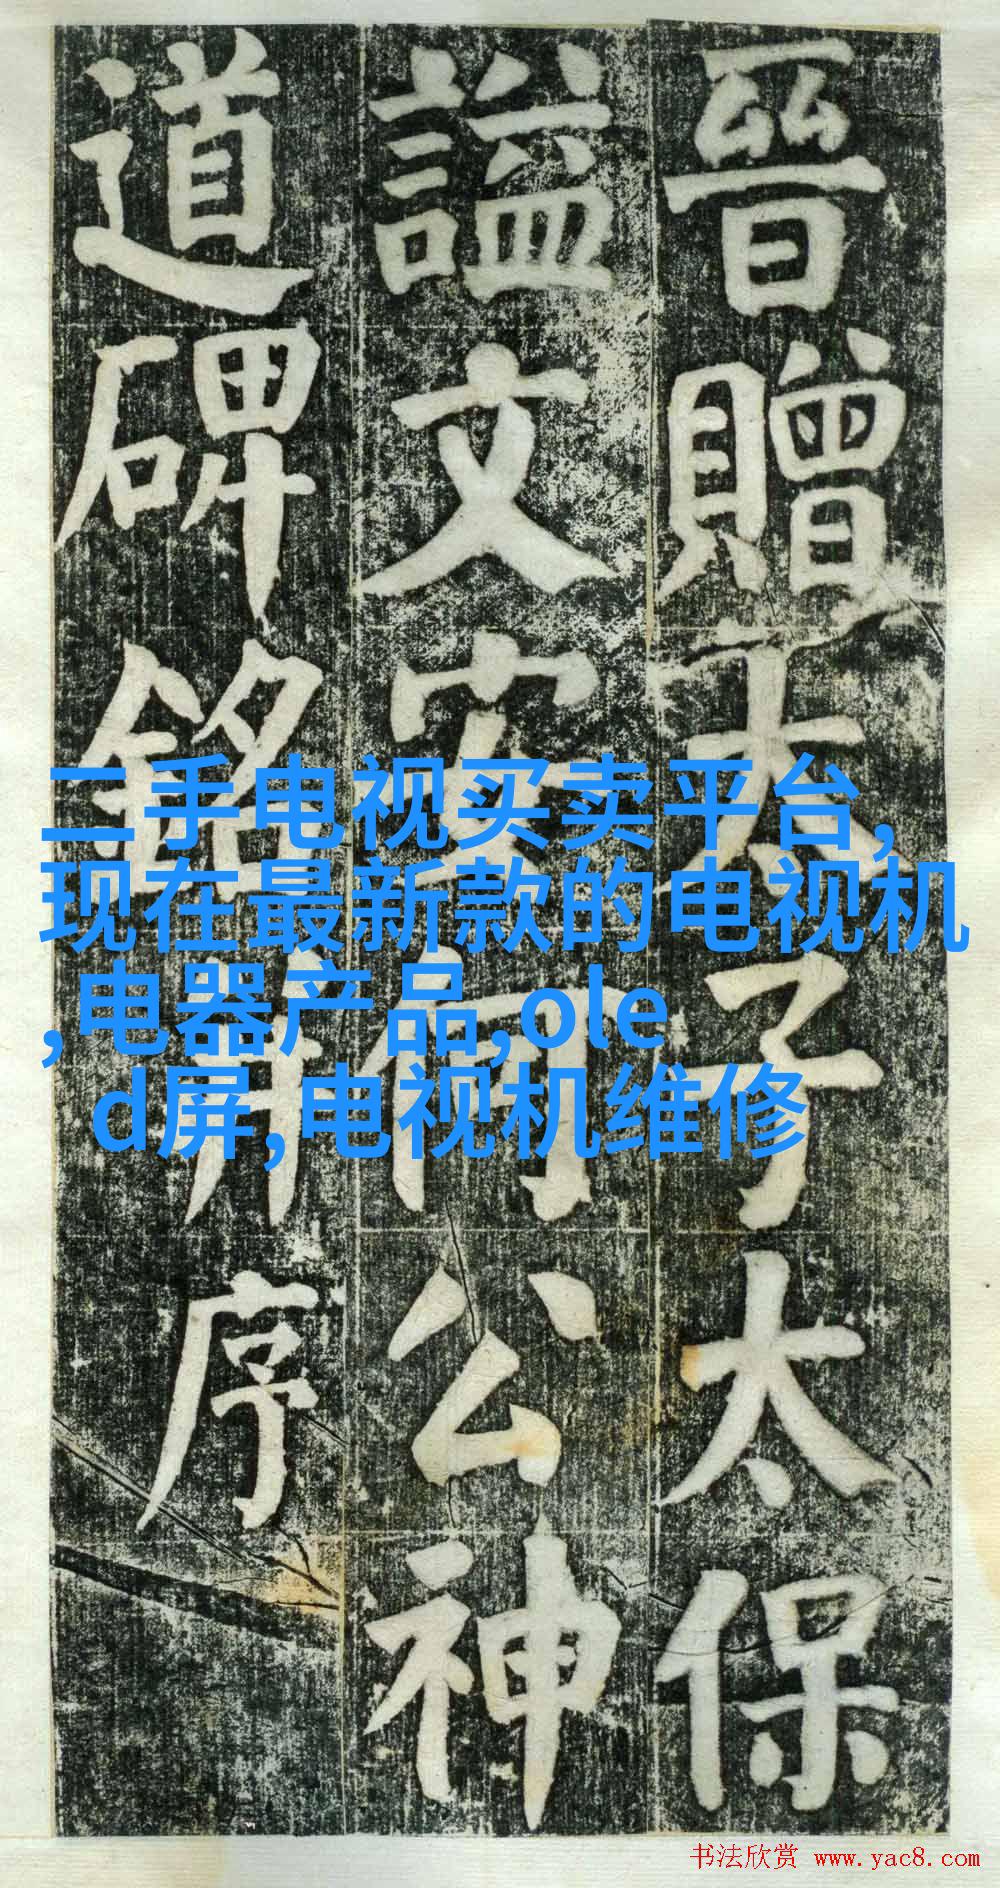 晉贈太子太保
謚文安何公神
道碑銘并序
二手电视买卖平台,
现在最新款的电视机
,电器产品,ole
d屏,电视机维修
书法欣赏 www.yac8.com